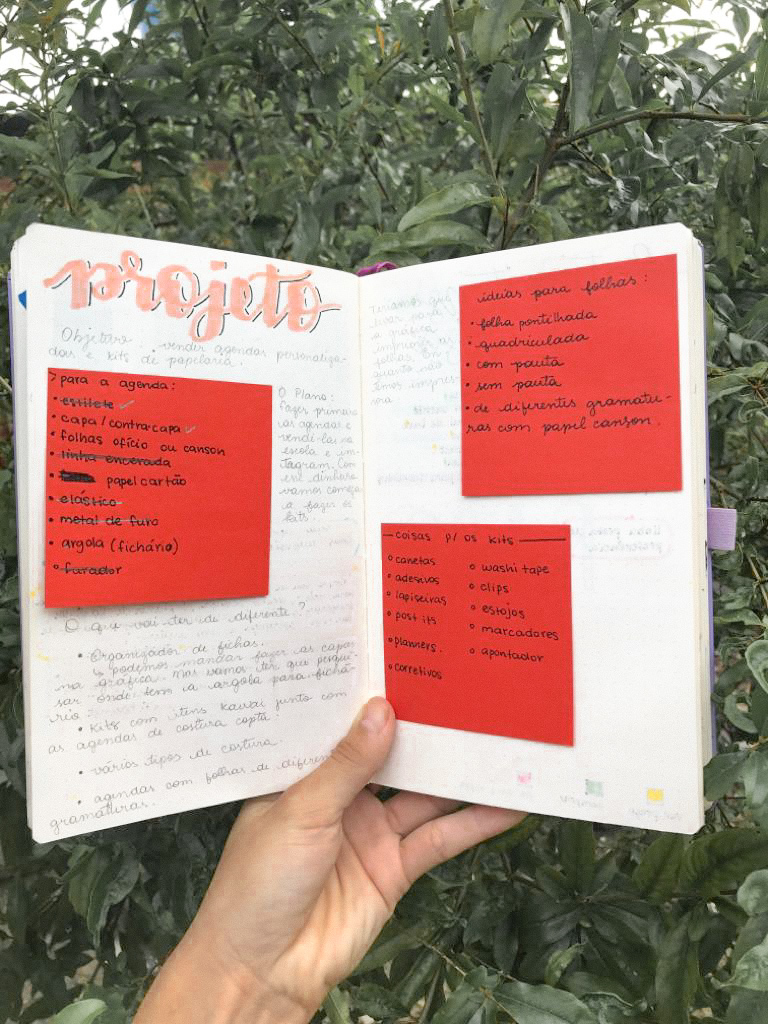 projeto
Objetivo: vender agendas personaliza-
das e kits de papelaria.
>para a agenda:
• estilete ✓
• capa/contra-capa ✓
• folhas ofício ou canson
• linha encerada
• papel cartão
• elástico
• metal de furo
• argola (fichário)
• furador
O Plano:
fazer primeiro
as agendas e
vendê-las na
escola e ins-
tagram. Com
esse dinheiro
vamos começar
a fazer os
kits.
O que vai ter de diferente?
• Organizador de fichas.
↳ podemos mandar fazer as capas
na gráfica. mas vamos ter que pesqui-
sar onde tem a argola para fichá-
rio.
• Kits com itens kawai junto com
as agendas de costura copta.
• vários tipos de costura.
• agendas com folhas de diferen
gramaturas.
Teríamos que
levar para
a gráfica
imprimir as
folhas. En
quanto não
temos impres-
sora.
ideias para folhas:
• folha pontilhada
• quadriculada
• com pauta
• sem pauta
• de diferentes gramatu-
ras com papel canson.
coisas p/ os kits
° canetas
° adesivos
° lapiseiras
° post its
° planners.
° corretivos
° washi tape
° clips
° estojos
° marcadores
° apontador